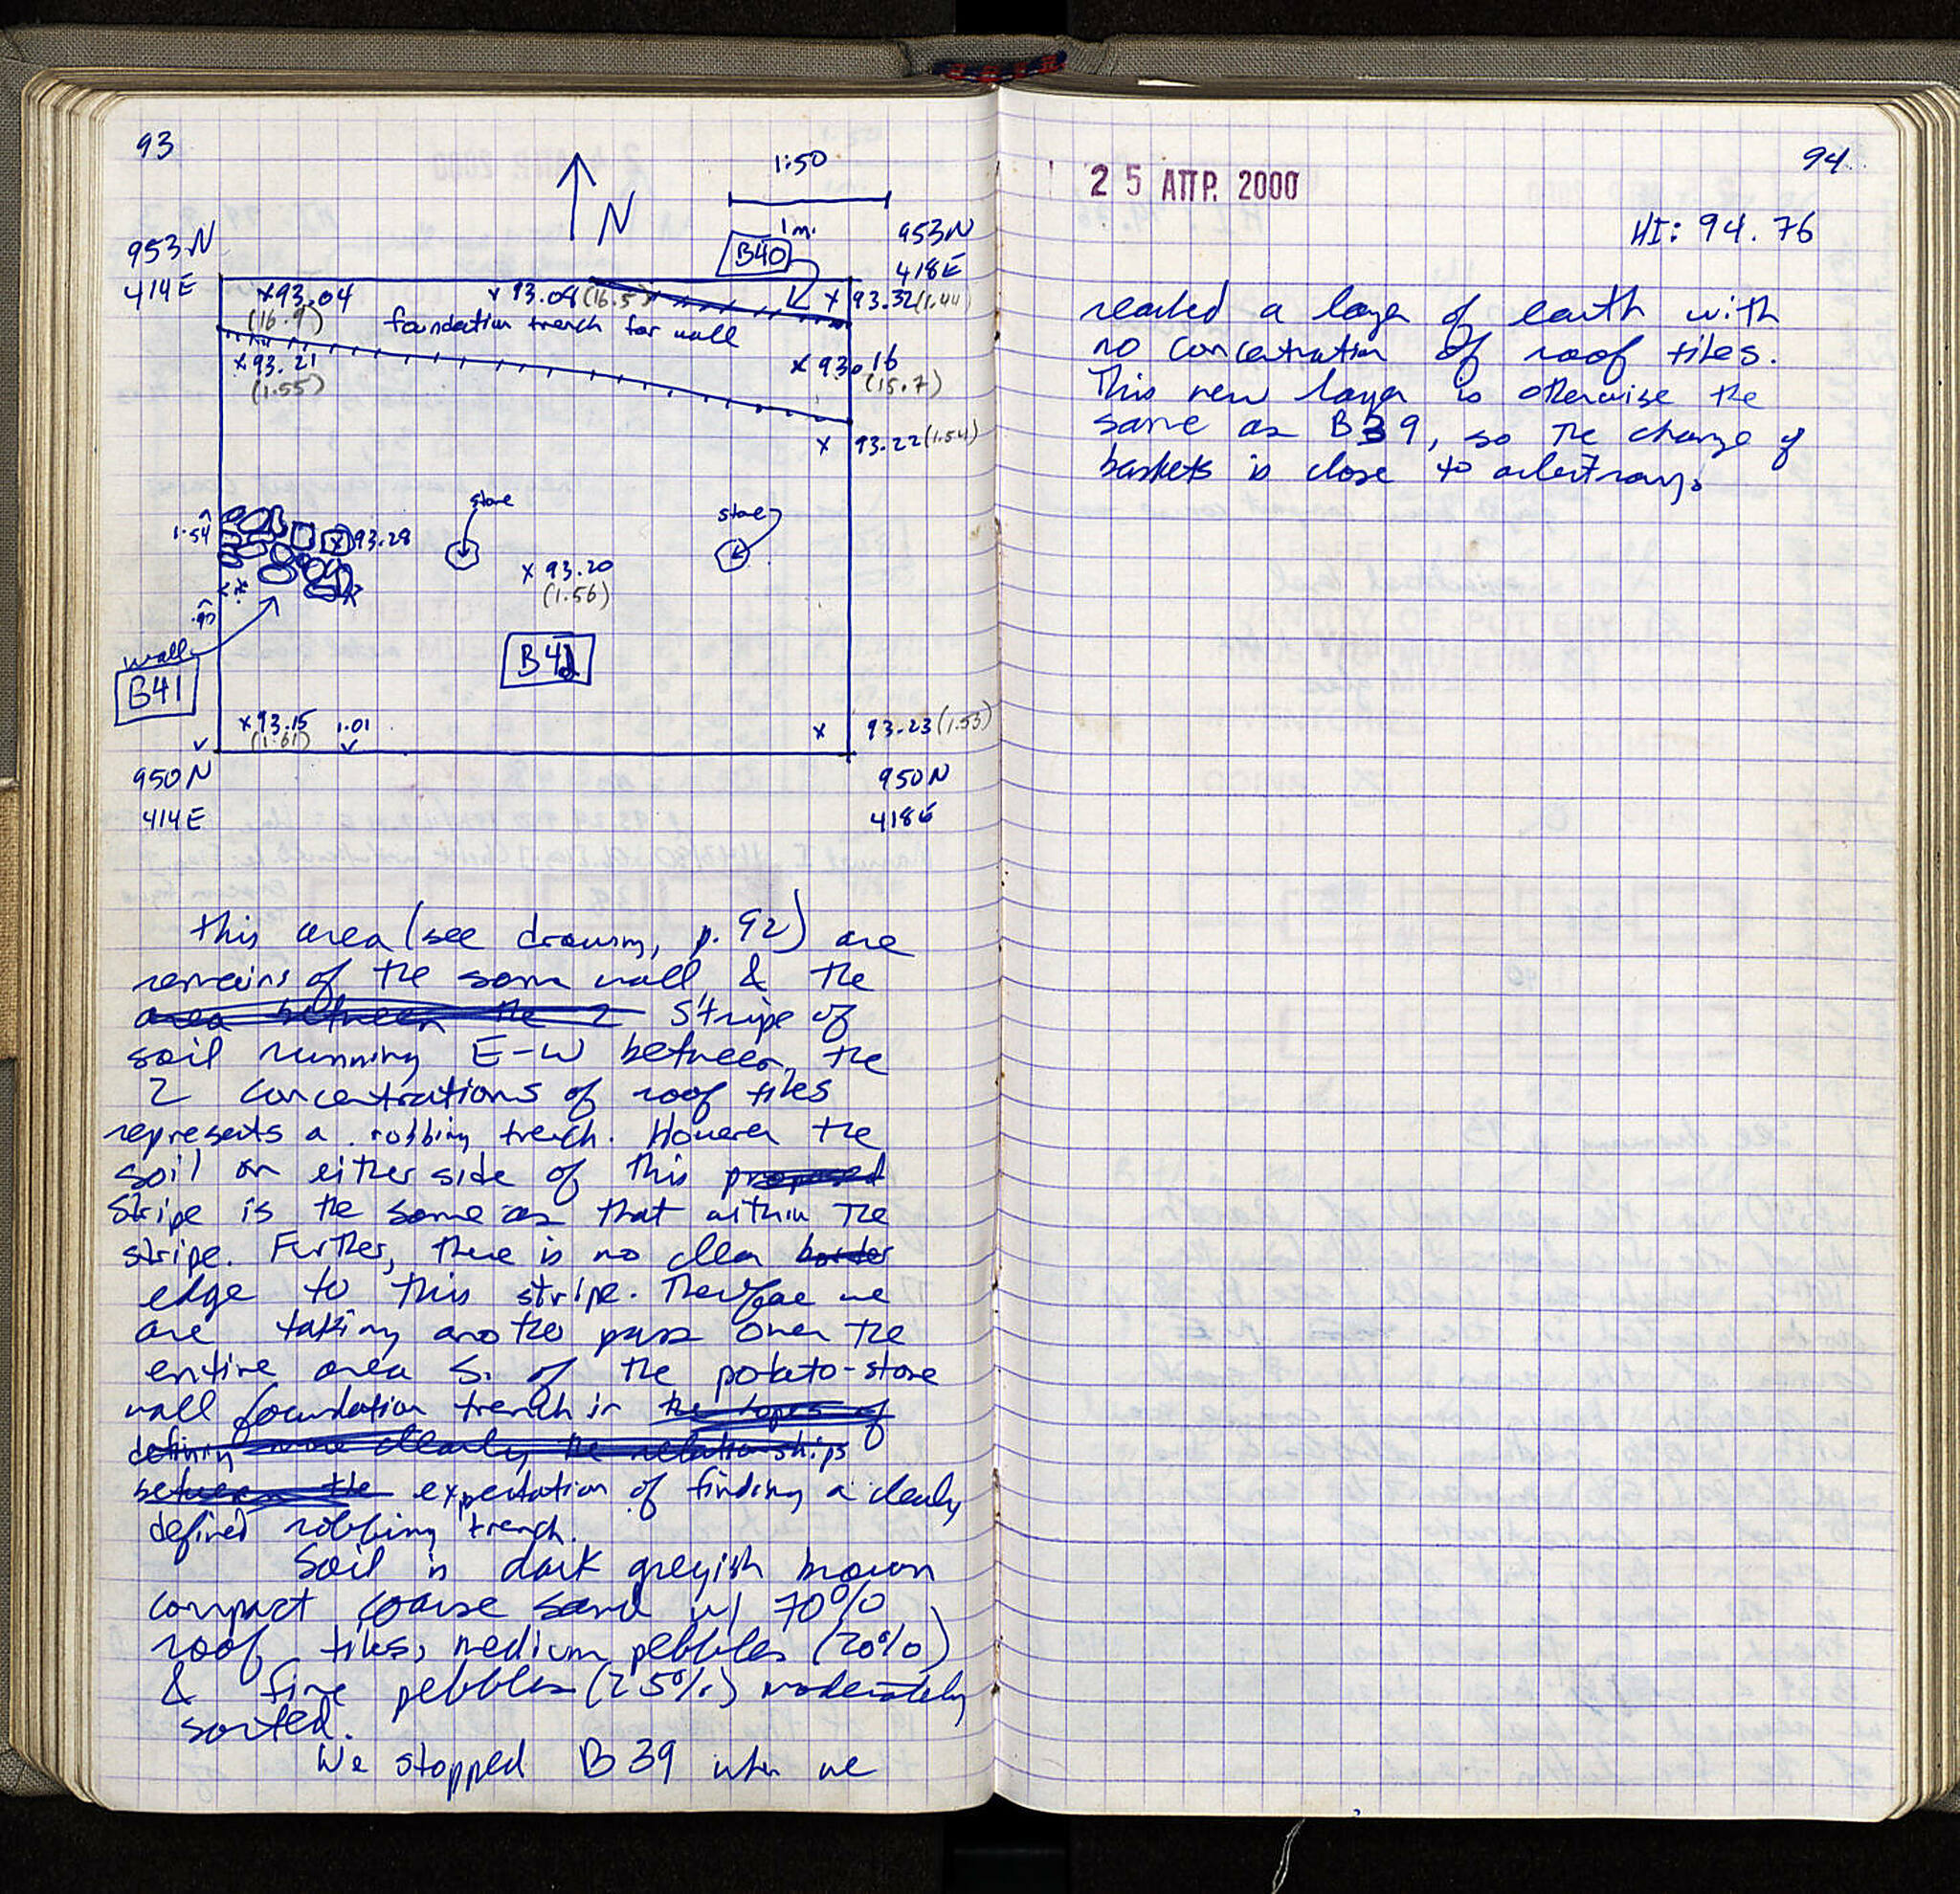 93
1:50
N
1m.
953N
414E
B40
953N
418E
x93.04
(16.9)
x 93.08 (16.5)
x 93.32 (1.44)
foundation trench for wall
x93.21
(1.55)
x 93.16
(15.7)
x 93.22 (1.54)
stone
stone
1.54
x 93.28
x 93.20
(1.56)
wall
B41
B42
x93.15
(1.61)
1.01
x 93.23 (1.53)
950N
414E
950N
418E
this area (see drawing, p. 92) are
remains of the same wall, & the
area between the 2 stripe of
soil running E-W between the
2 concentrations of roof tiles
represents a robbing trench. However the
soil on either side of this proposed
stripe is the same as that within the
stripe. Further, there is no clear border
edge to this stripe. Therefore we
are taking another pass over the
entire area S. of the potato-store
wall foundation trench in the hopes of
defining more clearly the relationships
between the expectation of finding a clearly
defined robbing trench.
Soil is dark greyish brown
compact coarse sand w/ 70%
roof tiles, medium pebbles (20%)
& fine pebbles (25%) moderately
sorted.
We stopped B39 when we
25 ΑΠΡ. 2000
94
HI: 94.76
reached a layer of earth with
no concentration of roof tiles.
This new layer is otherwise the
same as B39, so the change of
baskets is close to arbitrary.